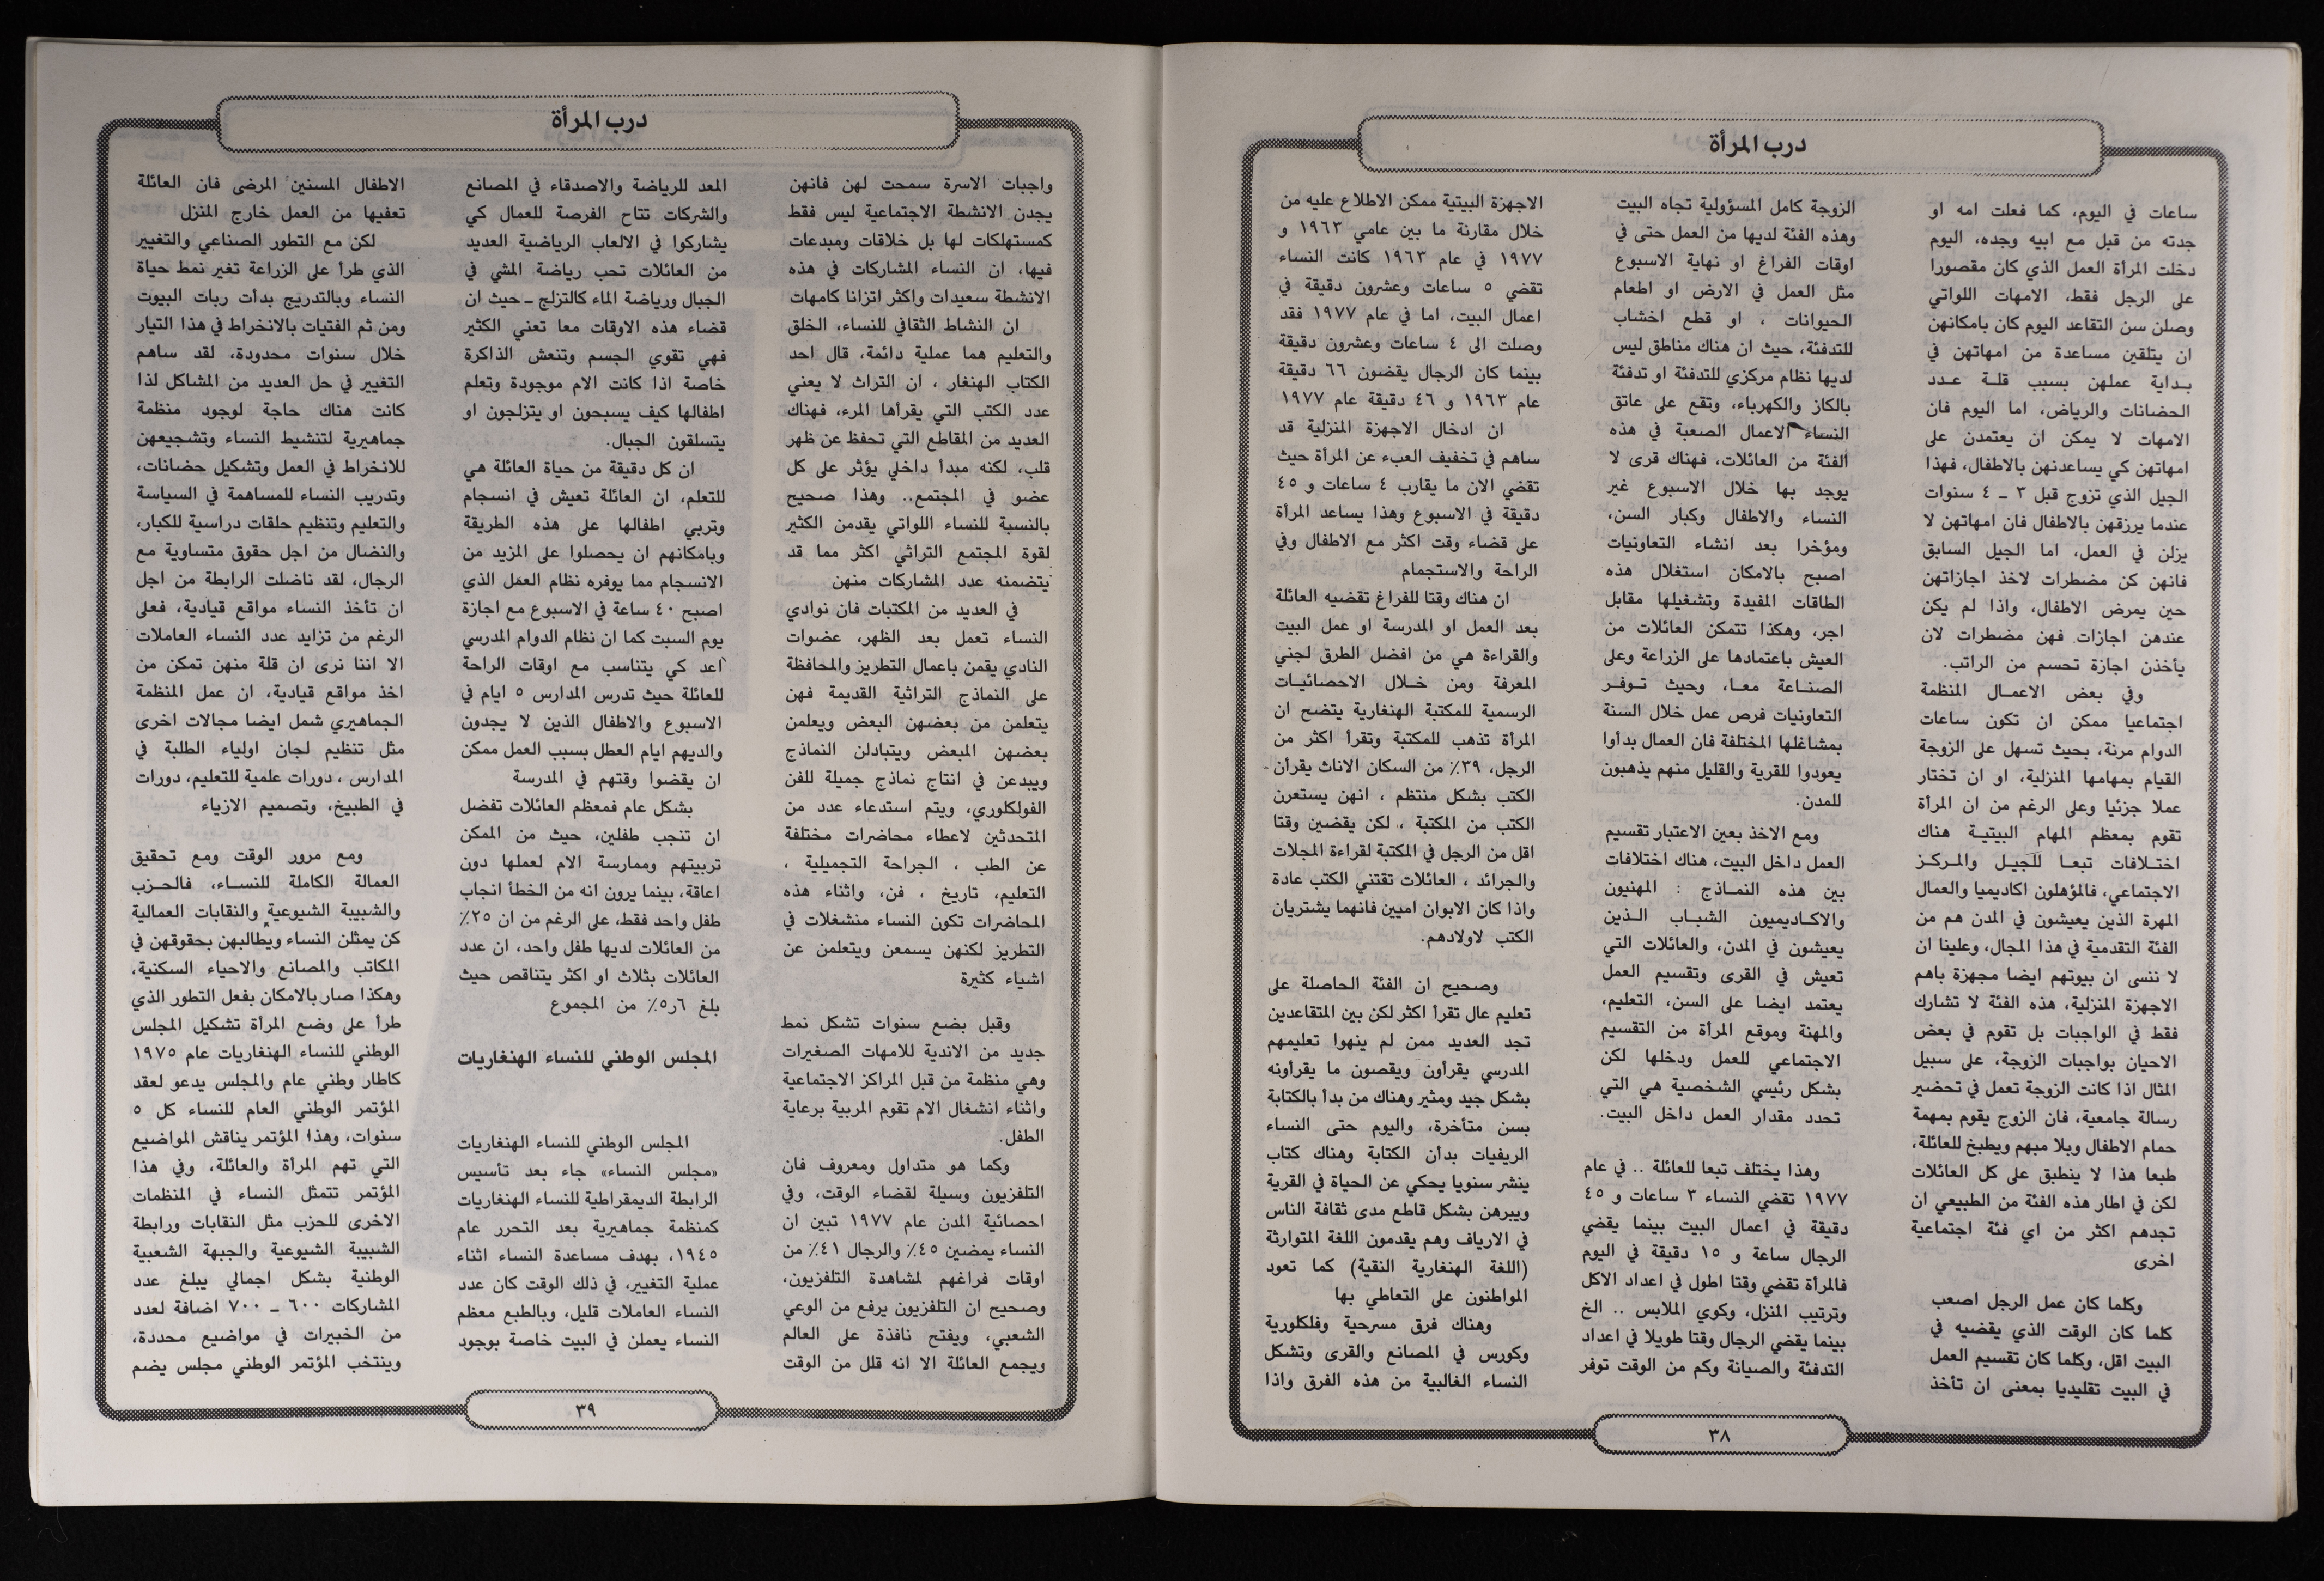 درب المرأة
ساعات في اليوم، كما فعلت امه او
جدته من قبل مع ابيه وجده، اليوم
دخلت المرأة العمل الذي كان مقصورا
على الرجل فقط، الامهات اللواتي
وصلن سن التقاعد اليوم كان بامكانهن
ان يتلقين مساعدة من امهاتهن في
بداية عملهن بسبب قلة عدد
الحضانات والرياض، اما اليوم فان
الامهات لا يمكن ان يعتمدن على
امهاتهن كي يساعدنهن بالاطفال، فهذا
الجيل الذي تزوج قبل ٣ ـ ٤ سنوات
عندما يرزقهن بالاطفال فان امهاتهن لا
يزلن في العمل، اما الجيل السابق
فانهن كن مضطرات لاخذ اجازاتهن
حين يمرض الاطفال، واذا لم يكن
عندهن اجازات فهن مضطرات لان
يأخذن اجازة تحسم من الراتب.
وفي بعض الاعمال المنظمة
اجتماعيا ممكن ان تكون ساعات
الدوام مرنة، بحيث تسهل على الزوجة
القيام بمهامها المنزلية، او ان تختار
عملا جزئيا وعلى الرغم من ان المرأة
تقوم بمعظم المهام البيتية هناك
اختلافات تبعا للجيل والمركز
الاجتماعي، فالمؤهلون اكاديميا والعمال
المهرة الذين يعيشون في المدن هم من
الفئة التقدمية في هذا المجال، وعلينا ان
لا ننسى ان بيوتهم ايضا مجهزة باهم
الاجهزة المنزلية، هذه الفئة لا تشارك
فقط في الواجبات بل تقوم في بعض
الاحيان بواجبات الزوجة، على سبيل
المثال اذا كانت الزوجة تعمل في تحضير
رسالة جامعية، فان الزوج يقوم بمهمة
حمام الاطفال وبلا مبهم ويطبخ للعائلة،
طبعا هذا لا ينطبق على كل العائلات
لكن في اطار هذه الفئة من الطبيعي ان
تجدهم اكثر من اي فئة اجتماعية
اخرى
وكلما كان عمل الرجل اصعب
كلما كان الوقت الذي يقضيه في
البيت اقل، وكلما كان تقسيم العمل
في البيت تقليديا بمعنى ان تأخذ
الزوجة كامل المسؤولية تجاه البيت
وهذه الفئة لديها من العمل حتى في
اوقات الفراغ او نهاية الاسبوع
مثل العمل في الارض او اطعام
الحيوانات ، او قطع اخشاب
للتدفئة، حيث ان هناك مناطق ليس
لديها نظام مركزي للتدفئة او تدفئة
بالكاز والكهرباء، وتقع على عاتق
النساء الاعمال الصعبة في هذه
الفئة من العائلات، فهناك قرى لا
يوجد بها خلال الاسبوع غير
النساء والاطفال وكبار السن،
ومؤخرا بعد انشاء التعاونيات
اصبح بالامكان استغلال هذه
الطاقات المفيدة وتشغيلها مقابل
اجر، وهكذا تتمكن العائلات من
العيش باعتمادها على الزراعة وعلى
الصناعة معا، وحيث توفر
التعاونيات فرص عمل خلال السنة
بمشاغلها المختلفة فان العمال بدأوا
يعودوا للقرية والقليل منهم يذهبون
للمدن.
ومع الاخذ بعين الاعتبار تقسيم
العمل داخل البيت، هناك اختلافات
بين هذه النماذج : المهنيون
والاكاديميون الشباب الذين
يعيشون في المدن، والعائلات التي
تعيش في القرى وتقسيم العمل
يعتمد ايضا على السن، التعليم،
والمهنة وموقع المرأة من التقسيم
الاجتماعي للعمل ودخلها لكن
بشكل رئيسي الشخصية هي التي
تحدد مقدار العمل داخل البيت.
وهذا يختلف تبعا للعائلة .. في عام
١٩٧٧ تقضي النساء ٣ ساعات و ٤٥
دقيقة في اعمال البيت بينما يقضي
الرجال ساعة و ١٥ دقيقة في اليوم
فالمرأة تقضي وقتا اطول في اعداد الاكل
وترتيب المنزل، وكوي الملابس .. الخ
بينما يقضي الرجال وقتا طويلا في اعداد
التدفئة والصيانة وكم من الوقت توفر
الاجهزة البيتية ممكن الاطلاع عليه من
خلال مقارنة ما بين عامي ١٩٦٣ و
١٩٧٧ في عام ١٩٦٣ كانت النساء
تقضي ٥ ساعات وعشرون دقيقة في
اعمال البيت، اما في عام ١٩٧٧ فقد
وصلت الى ٤ ساعات وعشرون دقيقة
بينما كان الرجال يقضون ٦٦ دقيقة
عام ١٩٦٣ و ٤٦ دقيقة عام ١٩٧٧
ان ادخال الاجهزة المنزلية قد
ساهم في تخفيف العبء عن المرأة حيث
تقضي الان ما يقارب ٤ ساعات و ٤٥
دقيقة في الاسبوع وهذا يساعد المرأة
على قضاء وقت اكثر مع الاطفال وفي
الراحة والاستجمام
ان هناك وقتا للفراغ تقضيه العائلة
بعد العمل او المدرسة او عمل البيت
والقراءة هي من افضل الطرق لجني
المعرفة ومن خلال الاحصائيات
الرسمية للمكتبة الهنغارية يتضح ان
المرأة تذهب للمكتبة وتقرأ اكثر من
الرجل، ٣٩٪ من السكان الاناث يقرأن
الكتب بشكل منتظم ، انهن يستعرن
الكتب من المكتبة ، لكن يقضين وقتا
اقل من الرجل في المكتبة لقراءة المجلات
والجرائد ، العائلات تقتني الكتب عادة
واذا كان الابوان اميين فانهما يشتريان
الكتب لاولادهم.
وصحيح ان الفئة الحاصلة على
تعليم عال تقرأ اكثر لكن بين المتقاعدين
تجد العديد ممن لم ينهوا تعليمهم
المدرسي يقرأون ويقصون ما يقرأونه
بشكل جيد ومثير وهناك من بدأ بالكتابة
بسن متأخرة، واليوم حتى النساء
الريفيات بدأن الكتابة وهناك كتاب
ينشر سنويا يحكي عن الحياة في القرية
ويبرهن بشكل قاطع مدى ثقافة الناس
في الارياف وهم يقدمون اللغة المتوارثة
(اللغة الهنغارية النقية) كما تعود
المواطنون على التعاطي بها
وهناك فرق مسرحية وفلكلورية
وكورس في المصانع والقرى وتشكل
النساء الغالبية من هذه الفرق واذا
٣٨
درب المرأة
واجبات الاسرة سمحت لهن فانهن
يجدن الانشطة الاجتماعية ليس فقط
كمستهلكات لها بل خلاقات ومبدعات
فيها، ان النساء المشاركات في هذه
الانشطة سعيدات واكثر اتزانا كامهات
ان النشاط الثقافي للنساء، الخلق
والتعليم هما عملية دائمة، قال احد
الكتاب الهنغار ، ان التراث لا يعني
عدد الكتب التي يقرأها المرء، فهناك
العديد من المقاطع التي تحفظ عن ظهر
قلب، لكنه مبدأ داخلي يؤثر على كل
عضو في المجتمع.. وهذا صحيح
بالنسبة للنساء اللواتي يقدمن الكثير
لقوة المجتمع التراثي اكثر مما قد
يتضمنه عدد المشاركات منهن
في العديد من المكتبات فان نوادي
النساء تعمل بعد الظهر، عضوات
النادي يقمن باعمال التطريز والمحافظة
على النماذج التراثية القديمة فهن
يتعلمن من بعضهن البعض ويعلمن
بعضهن المبعض ويتبادلن النماذج
ويبدعن في انتاج نماذج جميلة للفن
الفولكلوري، ويتم استدعاء عدد من
المتحدثين لاعطاء محاضرات مختلفة
عن الطب ، الجراحة التجميلية ،
التعليم، تاريخ ، فن، واثناء هذه
المحاضرات تكون النساء منشغلات في
التطريز لكنهن يسمعن ويتعلمن عن
اشياء كثيرة
وقبل بضع سنوات تشكل نمط
جديد من الاندية للامهات الصغيرات
وهي منظمة من قبل المراكز الاجتماعية
واثناء انشغال الام تقوم المربية برعاية
الطفل.
وكما هو متداول ومعروف فان
التلفزيون وسيلة لقضاء الوقت، وفي
احصائية المدن عام ١٩٧٧ تبين ان
النساء يمضين ٤٥٪ والرجال ٤١٪ من
اوقات فراغهم لمشاهدة التلفزيون،
وصحيح ان التلفزيون يرفع من الوعي
الشعبي، ويفتح نافذة على العالم
ويجمع العائلة الا انه قلل من الوقت
المعد للرياضة والاصدقاء في المصانع
والشركات تتاح الفرصة للعمال كي
يشاركوا في الالعاب الرياضية العديد
من العائلات تحب رياضة المشي في
الجبال ورياضة الماء كالتزلج ـ حيث ان
قضاء هذه الاوقات معا تعني الكثير
فهي تقوي الجسم وتنعش الذاكرة
خاصة اذا كانت الام موجودة وتعلم
اطفالها كيف يسبحون او يتزلجون او
يتسلقون الجبال.
ان كل دقيقة من حياة العائلة هي
للتعلم، ان العائلة تعيش في انسجام
وتربي اطفالها على هذه الطريقة
وبامكانهم ان يحصلوا على المزيد من
الانسجام مما يوفره نظام العمل الذي
اصبح ٤٠ ساعة في الاسبوع مع اجازة
يوم السبت كما ان نظام الدوام المدرسي
اعد كي يتناسب مع اوقات الراحة
للعائلة حيث تدرس المدارس ٥ ايام في
الاسبوع والاطفال الذين لا يجدون
والديهم ايام العطل بسبب العمل ممكن
ان يقضوا وقتهم في المدرسة
بشكل عام فمعظم العائلات تفضل
ان تنجب طفلين، حيث من الممكن
تربيتهم وممارسة الام لعملها دون
اعاقة، بينما يرون انه من الخطأ انجاب
طفل واحد فقط، على الرغم من ان ٢٥٪
من العائلات لديها طفل واحد، ان عدد
العائلات بثلاث او اكثر يتناقص حيث
بلغ ٥٫٦٪ من المجموع
المجلس الوطني للنساء الهنغاريات
المجلس الوطني للنساء الهنغاريات
«مجلس النساء» جاء بعد تأسيس
الرابطة الديمقراطية للنساء الهنغاريات
كمنظمة جماهيرية بعد التحرر عام
١٩٤٥، بهدف مساعدة النساء اثناء
عملية التغيير، في ذلك الوقت كان عدد
النساء العاملات قليل، وبالطبع معظم
النساء يعملن في البيت خاصة بوجود
الاطفال المسنين المرضى فان العائلة
تعفيها من العمل خارج المنزل
لكن مع التطور الصناعي والتغيير
الذي طرأ على الزراعة تغير نمط حياة
النساء وبالتدريج بدأت ربات البيوت
ومن ثم الفتيات بالانخراط في هذا التيار
خلال سنوات محدودة، لقد ساهم
التغيير في حل العديد من المشاكل لذا
كانت هناك حاجة لوجود منظمة
جماهيرية لتنشيط النساء وتشجيعهن
للانخراط في العمل وتشكيل حضانات،
وتدريب النساء للمساهمة في السياسة
والتعليم وتنظيم حلقات دراسية للكبار،
والنضال من اجل حقوق متساوية مع
الرجال، لقد ناضلت الرابطة من اجل
ان تأخذ النساء مواقع قيادية، فعلى
الرغم من تزايد عدد النساء العاملات
الا اننا نرى ان قلة منهن تمكن من
اخذ مواقع قيادية، ان عمل المنظمة
الجماهيري شمل ايضا مجالات اخرى
مثل تنظيم لجان اولياء الطلبة في
المدارس ، دورات علمية للتعليم، دورات
في الطبيخ، وتصميم الازياء
ومع مرور الوقت ومع تحقيق
العمالة الكاملة للنساء، فالحزب
والشبيبة الشيوعية والنقابات العمالية
كن يمثلن النساء ويطالبهن بحقوقهن في
المكاتب والمصانع والاحياء السكنية،
وهكذا صار بالامكان بفعل التطور الذي
طرأ على وضع المرأة تشكيل المجلس
الوطني للنساء الهنغاريات عام ١٩٧٥
كاطار وطني عام والمجلس يدعو لعقد
المؤتمر الوطني العام للنساء كل ٥
سنوات، وهذا المؤتمر يناقش المواضيع
التي تهم المرأة والعائلة، وفي هذا
المؤتمر تتمثل النساء في المنظمات
الاخرى للحزب مثل النقابات ورابطة
الشبيبة الشيوعية والجبهة الشعبية
الوطنية بشكل اجمالي يبلغ عدد
المشاركات ٦٠٠ ـ ٧٠٠ اضافة لعدد
من الخبيرات في مواضيع محددة،
وينتخب المؤتمر الوطني مجلس يضم
٣٩